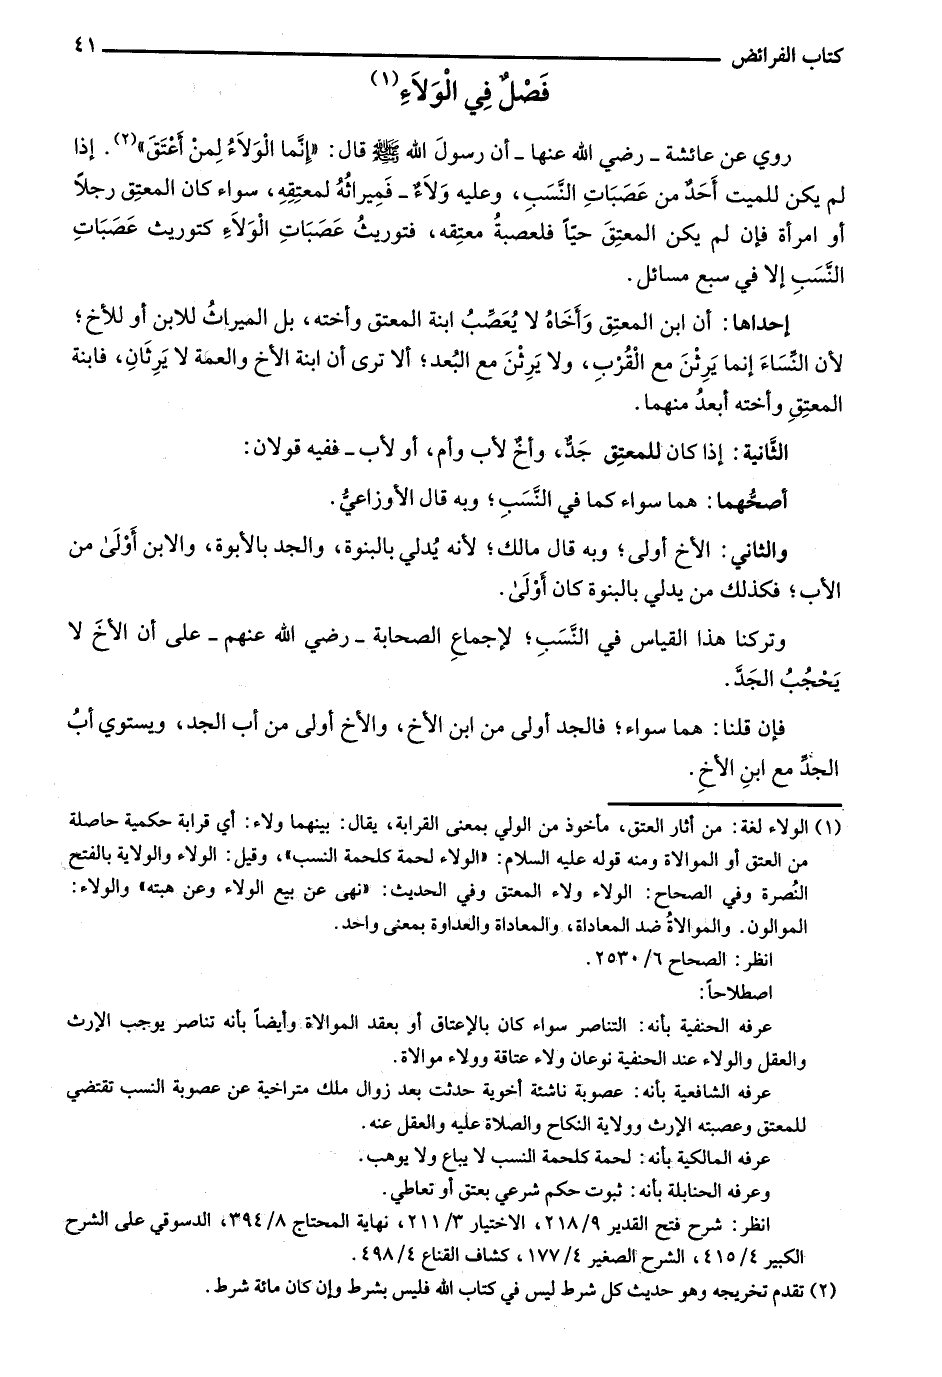 كتاب الفرائض ٤١
فَصْلٌ فِي الْوَلاَءِ(١)
روي عن عائشة ـ رضي الله عنها ـ أن رسولَ الله ﷺ قال: «إِنَّما الْوَلاَءُ لِمنْ أَعْتَقَ»(٢). إذا
لم يكن للميت أَحَدٌ من عَصَبَاتِ النَّسَبِ، وعليه وَلاَءٌ ـ فَمِيراثُهُ لمعتِقِهِ، سواء كان المعتِق رجلاً
أو امرأة فإن لم يكن المعتِقَ حيّاً فلعصبةُ معتِقه، فتوريثُ عَصَبَاتِ الْوَلاَءِ كتوريث عَصَبَاتِ
النَّسَبِ إلا في سبع مسائل.
إحداها: أن ابن المعتِق وَأَخَاهُ لا يُعَصِّبُ ابنة المعتق وأخته، بل الميراثُ للابن أو للأخ؛
لأن النِّسَاءَ إنما يَرِثْنَ مع الْقُرْبِ، ولا يَرِثْنَ مع البُعد؛ ألا ترى أن ابنة الأخ والعمة لا يَرِثَانِ، فابنة
المعتِقِ وأخته أبعدُ منهما.
الثَّانية: إذا كان للمعتِق جَدٌّ، وأخٌ لأب وأم، أو لأب ـ ففيه قولان:
أصحُّهما: هما سواء كما في النَّسَبِ؛ وبه قال الأوزاعيُّ.
والثاني: الأخ أولى؛ وبه قال مالك؛ لأنه يُدلي بالبنوة، والجد بالأبوة، والابن أَوْلَىٰ من
الأب؛ فكذلك من يدلي بالبنوة كان أَوْلَىٰ.
وتركنا هذا القياس في النَّسَبِ؛ لإجماعِ الصحابة ـ رضي الله عنهم ـ على أن الأخَ لا
يَحْجُبُ الجَدَّ.
فإن قلنا: هما سواء؛ فالجد أولى من ابن الأخ، والأخ أولى من أب الجد، ويستوي أبُ
الجدِّ مع ابنِ الأخِ.
(١) الولاء لغة: من أثار العتق، مأخوذ من الولي بمعنى القرابة، يقال: بينهما ولاء: أي قرابة حكمية حاصلة
من العتق أو الموالاة ومنه قوله عليه السلام: «الولاء لحمة كلحمة النسب»، وقيل: الولاء والولاية بالفتح
النُصرة وفي الصحاح: الولاء ولاء المعتق وفي الحديث: «نهى عن بيع الولاء وعن هبته» والولاء:
الموالون. والموالاةُ ضد المعاداة، والمعاداة والعداوة بمعنى واحد.
انظر: الصحاح ٦/ ٢٥٣٠.
اصطلاحاً:
عرفه الحنفية بأنه: التناصر سواء كان بالإعتاق أو بعقد الموالاة وأيضاً بأنه تناصر يوجب الإرث
والعقل والولاء عند الحنفية نوعان ولاء عتاقة وولاء موالاة.
عرفه الشافعية بأنه: عصوبة ناشئة أخوية حدثت بعد زوال ملك متراخية عن عصوبة النسب تقتضي
للمعتق وعصبته الإرث وولاية النكاح والصلاة عليه والعقل عنه.
عرفه المالكية بأنه: لحمة كلحمة النسب لا يباع ولا يوهب.
وعرفه الحنابلة بأنه: ثبوت حكم شرعي بعتق أو تعاطي.
انظر: شرح فتح القدير ٩/ ٢١٨، الاختيار ٣/ ٢١١، نهاية المحتاج ٨/ ٣٩٤، الدسوقي على الشرح
الكبير ٤/ ٤١٥، الشرح الصغير ٤/ ١٧٧، كشاف القناع ٤/ ٤٩٨.
(٢) تقدم تخريجه وهو حديث كل شرط ليس في كتاب الله فليس بشرط وإن كان مائة شرط.